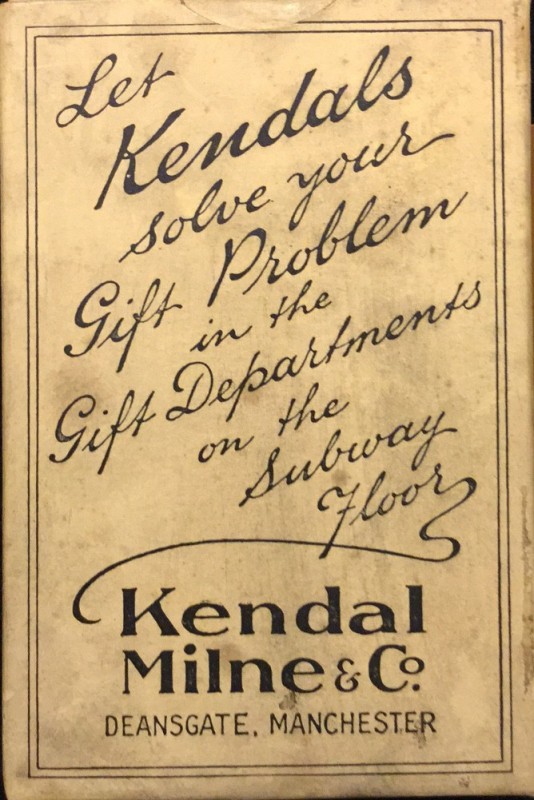 Let
Kendals
solve your
Gift Problem
in the
Gift Departments
on the
Subway
Floor
Kendal
Milne & Co.
DEANSGATE, MANCHESTER